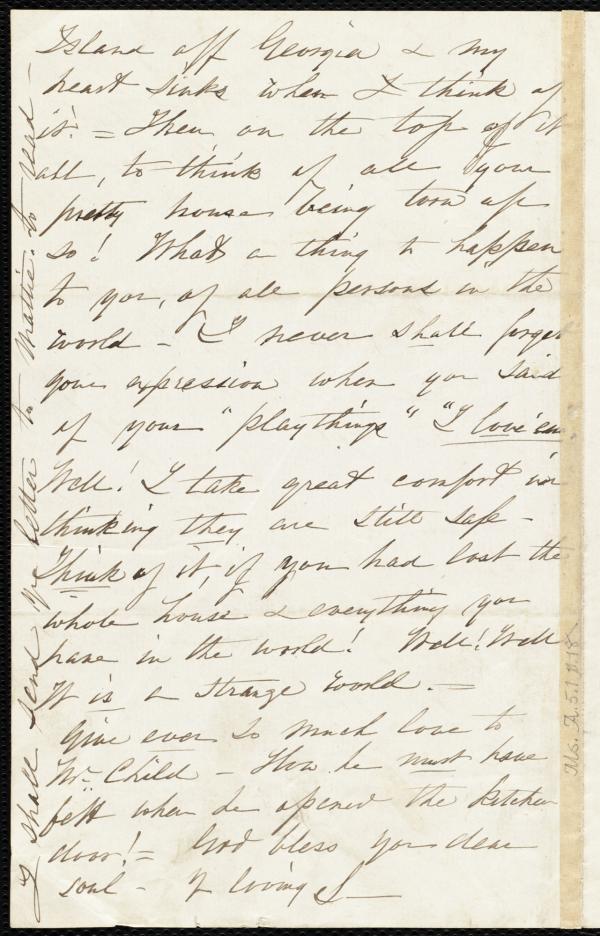 Island off Georgia & my
heart sinks when I think of
it! = Then on the top of it
all, to think of all your
pretty house being torn up
so! What a thing to happen
to you, of all persons in the
world - I never shall forget
your expression when you said
of your "playthings" "I love 'em
Well! I take great comfort in
thinking they are still safe -
Think of it, if you had lost the
whole house & everything you
have in the world! Well! Well
It is a strange world. =
Give ever so much love to
Mr. Child - How he must have
felt when he opened the kitchen
door! = God bless you dear
soul - Yr loving S
I shall send yr letter to Mattie to read -
Ms. A. 5.1 p. 18